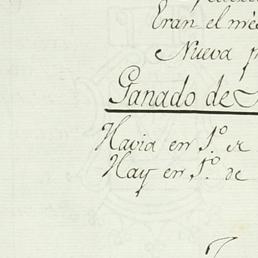 Eran el
Nueva
Ganado de
Havia en 1.º
Hay en 1.º de